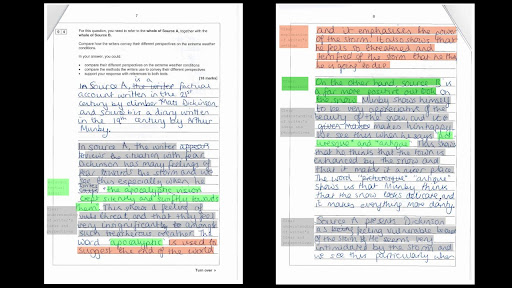 7
0 4
For this question, you need to refer to the whole of Source A, together with the
whole of Source B.
Compare how the writers convey their different perspectives on the extreme weather
conditions.
In your answer, you could:
• compare their different perspectives on the extreme weather conditions
• compare the methods the writers use to convey their different perspectives
• support your response with references to both texts.
[16 marks]
is a
In Source A, the writer factual
account written in the 21st
century by climber Matt Dickinson
and source B is a diary written
in the 19th century by Arthur
Munby.
In source A, the writer
situation with fear.
Dickinson has many feelings of
fear towards the storm and we
see this especially when he
says "the apocalyptic vision
crept silently and swiftly towards
them". This shows a feeling of
threat and that they feel
very insignificantly to
such treacherous weather. The
word "apocalyptic" is used to
suggest the end of the world
Turn over
and it emphasises the power of
the storm. It also shows that
he feels so threatened and
terrified of the storm that he thinks
he is going to die.
On the other hand source B is
a far more positive outlook on
the snow. Munby shows himself
to be very appreciative of the
beauty of the snow and
makes him happy.
We see this when he says "pict
uresque" and "antique". This shows
us that he thinks that the town is
enhanced by the snow and
that it makes it a nicer place.
The word "picturesque" "antique"
shows us that Munby thinks
that the snow looks delicate and
it makes everything more dainty.
Source A presents Dickinson
as being feeling vulnerable because
of the storm. He seems very
intimidated by the storm and
we see this particularly when